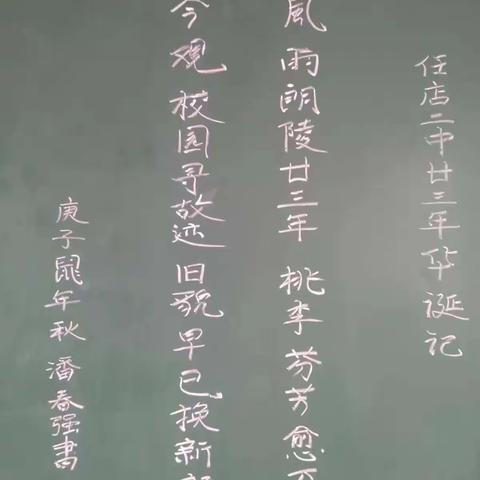 任店二中廿三年华诞记
風雨朗陵廿三年桃李芬芳愈万
今观校园寻故迹旧貌早已換新
庚子鼠年秋潘春强書